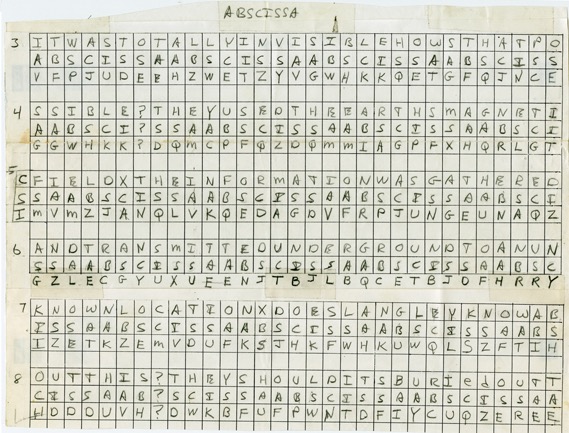 ABSCISSA
3 I T W A S T O T A L L Y I N V I S I B L E H O W S T H A T P O
A B S C I S S A A B S C I S S A A B S C I S S A A B S C I S S
V F P J U D E E H Z W E T Z Y V G W H K K Q E T G F Q J N C E
4 S S I B L E ? T H E Y U S E D T H E E A R T H S M A G N E T I
A A B S C I ? S S A A B S C I S S A A B S C I S S A A B S C I
G G W H K K ? D Q M C P F Q Z D Q M M I A G P F X H Q R L G T
5 C F I E L D X T H E I N F O R M A T I O N W A S G A T H E R E D
S S A A B S C I S S A A B S C I S S A A B S C I S S A A B S C I
I M V M Z J A N Q L V K Q E D A G D V F R P J U N G E U N A Q Z
6 A N D T R A N S M I T T E D U N D E R G R O U N D T O A N U N
S S A A B S C I S S A A B S C I S S A A B S C I S S A A B S C
G Z L E C G Y U X U E E N J T B J L B Q C E T B J D F H R R Y
7 K N O W N L O C A T I O N X D O E S L A N G L E Y K N O W A B
I S S A A B S C I S S A A B S C I S S A A B S C I S S A A B S
I Z E T K Z E M V D U F K S J H K F W H K U W Q L S Z F T I H
8 O U T T H I S ? T H E Y S H O U L D I T S B U R I e d O U T T
C I S S A A B ? S C I S S A A B S C I S S A A B S C I S S A A
H D D D U V H ? D W K B F U F P W N T D F I Y C U Q Z E R E E